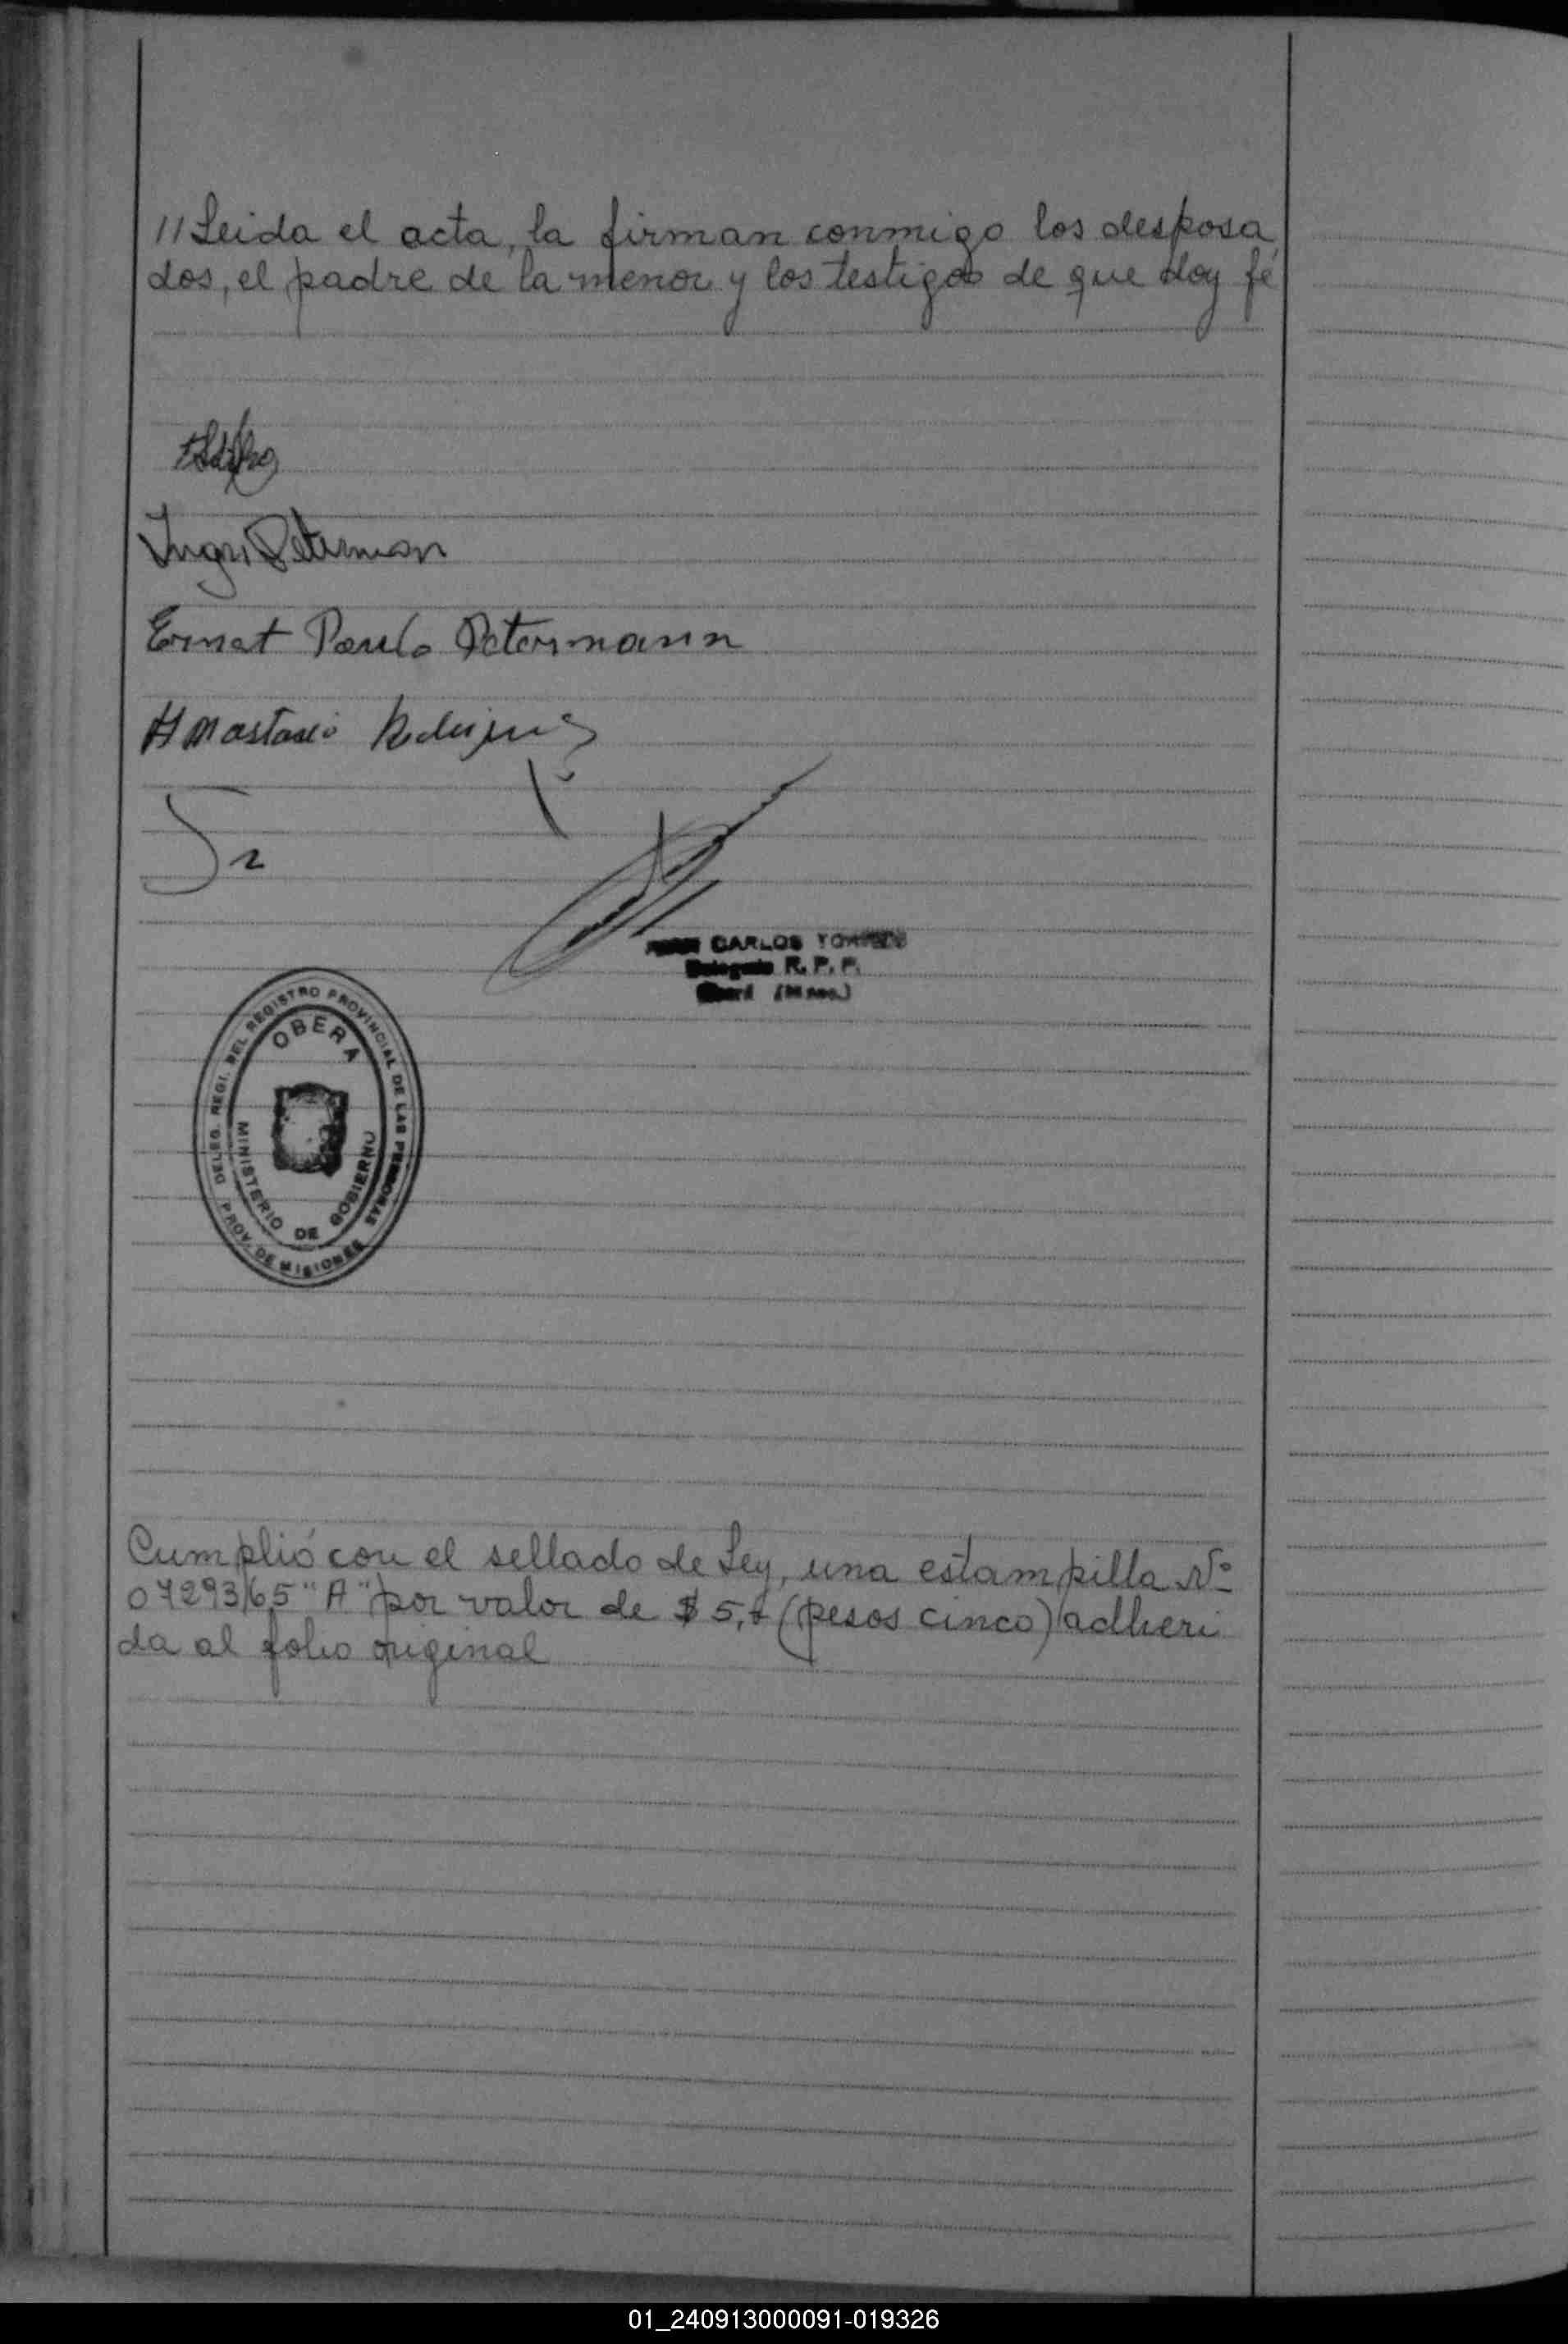 //Leida el acta, la firman conmigo los desposa
dos, el padre de la menor y los testigos de que doy fé
Ingri Peterman
Ernst Paulo Petermann
Anastasio Rodriguez
CARLOS
R. P. P.
DELEG. REGI. DEL REGISTRO PROVINCIAL DE LAS PERSONAS
OBERA
MINISTERIO DE GOBIERNO
PROV. DE MISIONES
Cumplió con el sellado de Ley, una estampilla Nº
07293165 "A" por valor de $ 5,- (pesos cinco) adheri
da al folio original
01_240913000091-019326